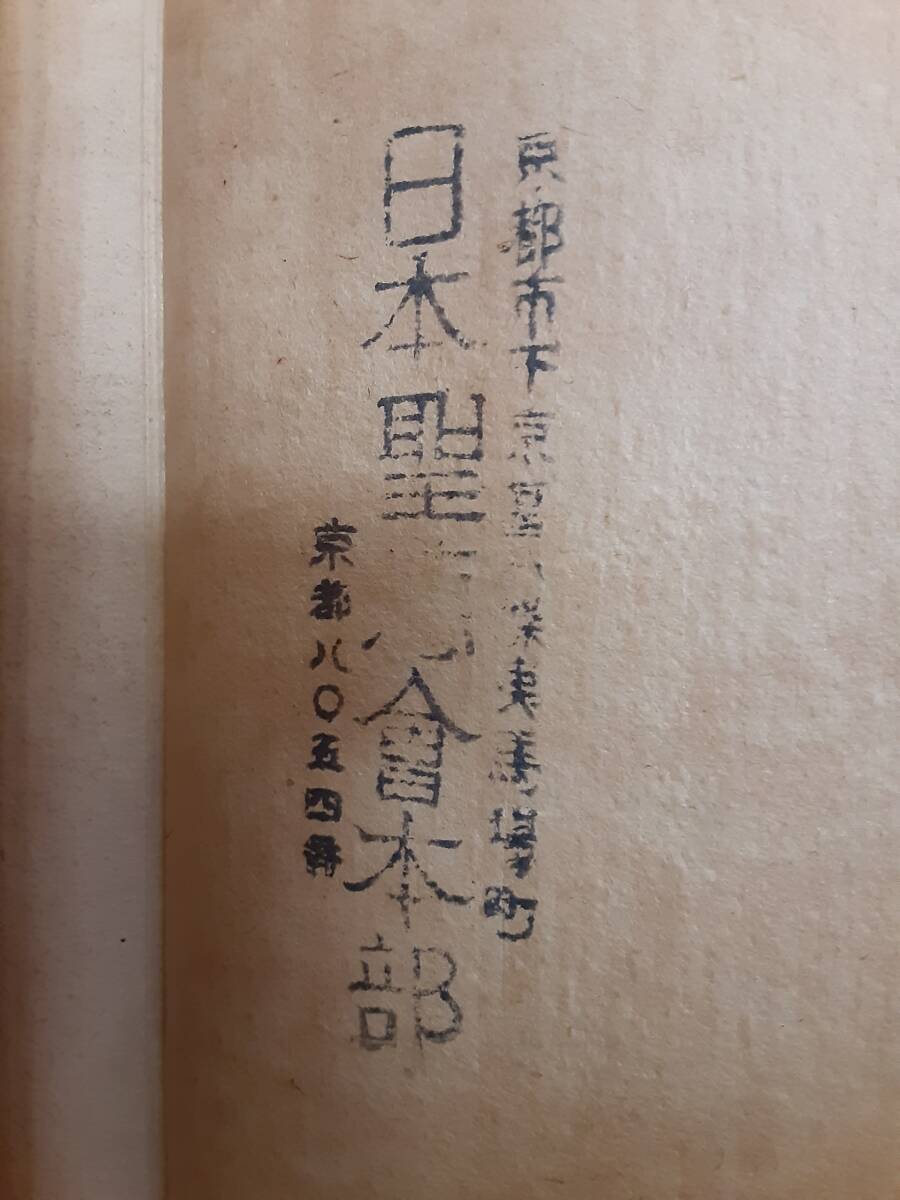 京都市下京區條夷馬場町
日本聖會本部
京都八〇五四番